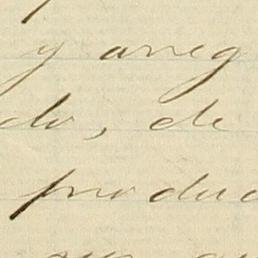 y arreg
do, de
produc